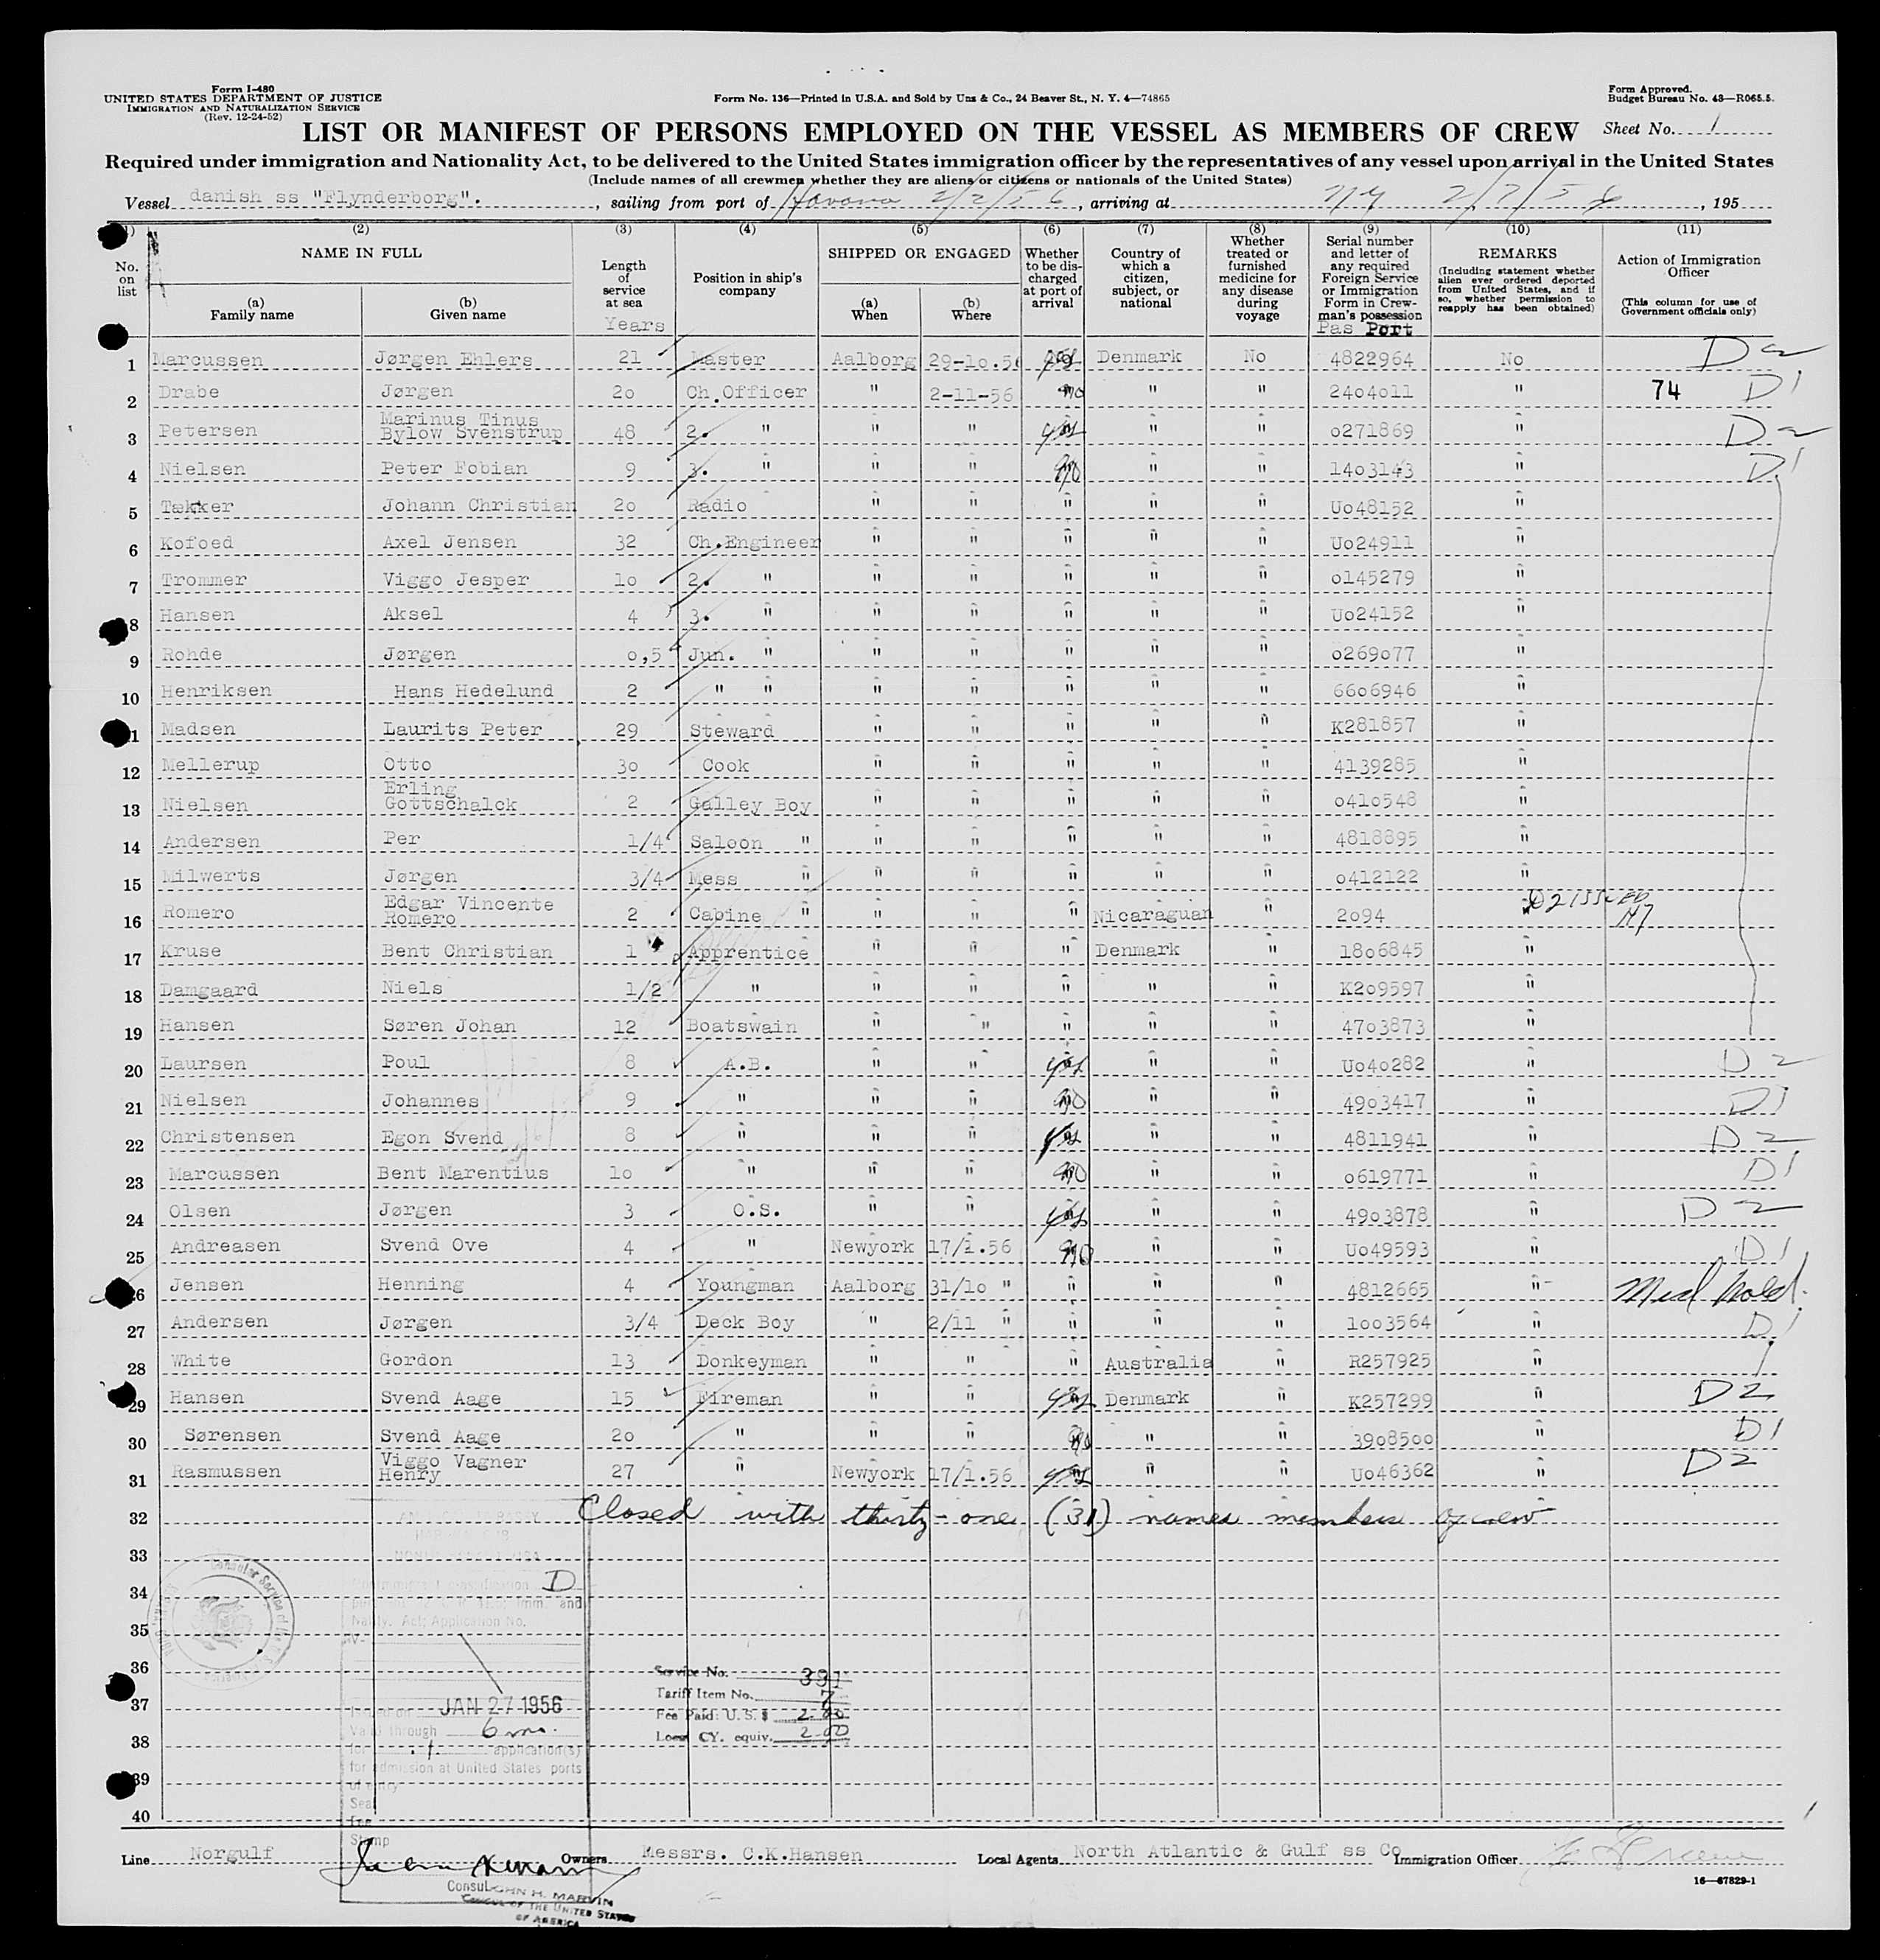 Form I-480
UNITED STATES DEPARTMENT OF JUSTICE
IMMIGRATION AND NATURALIZATION SERVICE
(Rev. 12-24-52)
Form No. 136—Printed in U.S.A. and Sold by Unz & Co., 24 Beaver St., N. Y. 4—74865
Form Approved.
Budget Bureau No. 43—R065.5.
LIST OR MANIFEST OF PERSONS EMPLOYED ON THE VESSEL AS MEMBERS OF CREW Sheet No. 1
Required under immigration and Nationality Act, to be delivered to the United States immigration officer by the representatives of any vessel upon arrival in the United States
(Include names of all crewmen whether they are aliens or citizens or nationals of the United States)
Vessel danish ss "Flynderborg". , sailing from port of Havana 2/2/56 , arriving at NY 2/7/56 , 195
(2) (3) (4) (5) (6) (7) (8) (9) (10) (11)
No. on list
NAME IN FULL
(a) Family name
(b) Given name
Length of service at sea
Years
Position in ship's company
SHIPPED OR ENGAGED
(a) When
(b) Where
Whether to be discharged at port of arrival
Country of which a citizen, subject, or national
Whether treated or furnished medicine for any disease during voyage
Serial number and letter of any required Foreign Service or Immigration Form in Crewman's possession
Pas Port
REMARKS
(Including statement whether alien ever ordered deported from United States, and if so, whether permission to reapply has been obtained)
Action of Immigration Officer
(This column for use of Government officials only)
1 Marcussen Jørgen Ehlers 21 Master Aalborg 29-10.56 yes Denmark No 4822964 No D2
2 Drabe Jørgen 20 Ch.Officer " 2-11-56 no " " 2404011 " 74 D1
3 Petersen Marinus Tinus Bylow Svenstrup 48 2. " " " yes " " 0271869 " D2
4 Nielsen Peter Fobian 9 3. " " " no " " 1403143 " D1
5 Tækker Johann Christian 20 Radio " " " " " Uo48152 "
6 Kofoed Axel Jensen 32 Ch.Engineer " " " " " Uo24911 "
7 Trommer Viggo Jesper 10 2. " " " " " " 0145279 "
8 Hansen Aksel 4 3. " " " " " " Uo24152 "
9 Rohde Jørgen 0,5 Jun. " " " " " " 0269077 "
10 Henriksen Hans Hedelund 2 " " " " " " " 6606946 "
11 Madsen Laurits Peter 29 Steward " " " " " K281857 "
12 Mellerup Otto 30 Cook " " " " " 4139285 "
13 Nielsen Erling Gottschalck 2 Galley Boy " " " " " 0410548 "
14 Andersen Per 1/4 Saloon " " " " " " 4818895 "
15 Milwerts Jørgen 3/4 Mess " " " " " " 0412122 "
16 Romero Edgar Vincente Romero 2 Cabine " " " " Nicaraguan " 2094 " D2 issued NY
17 Kruse Bent Christian 1 Apprentice " " " Denmark " 1806845 "
18 Damgaard Niels 1/2 " " " " " " K209597 "
19 Hansen Søren Johan 12 Boatswain " " " " " 4703873 "
20 Laursen Poul 8 A.B. " " yes " " Uo40282 " D2
21 Nielsen Johannes 9 " " " no " " 4903417 " D1
22 Christensen Egon Svend 8 " " " yes " " 4811941 " D2
23 Marcussen Bent Marentius 10 " " " no " " 0619771 " D1
24 Olsen Jørgen 3 O.S. " " yes " " 4903878 " D2
25 Andreasen Svend Ove 4 " Newyork 17/1.56 no " " Uo49593 " D1
26 Jensen Henning 4 Youngman Aalborg 31/10 " " " " 4812665 " Med Hold.
27 Andersen Jørgen 3/4 Deck Boy " 2/11 " " " " 1003564 " D1
28 White Gordon 13 Donkeyman " " " Australia " R257925 "
29 Hansen Svend Aage 15 Fireman " " yes Denmark " K257299 " D2
30 Sørensen Svend Aage 20 " " " no " " 3908500 " D1
31 Rasmussen Viggo Vagner Henry 27 " Newyork 17/1.56 yes " " Uo46362 " D2
32 Closed with thirty-one (31) names members of crew
33
34
35
36
37
38
39
40
Consular Service
classification D
Imm. and
Nat'y. Act; Application No.
V-
Issued on JAN 27 1956
Valid through 6 mo.
for 1 application(s)
for admission at United States ports
of entry
Seal
Fee
Stamp
Service No. 391
Tariff Item No. 7
Fee Paid: U.S. $ 2.00
Local CY. equiv. 2.00
Line Norgulf Owners Messrs. C.K.Hansen Local Agents North Atlantic & Gulf ss Co Immigration Officer
Consul
JOHN H. MARVIN
CONSUL OF THE UNITED STATES
OF AMERICA
16—67829-1